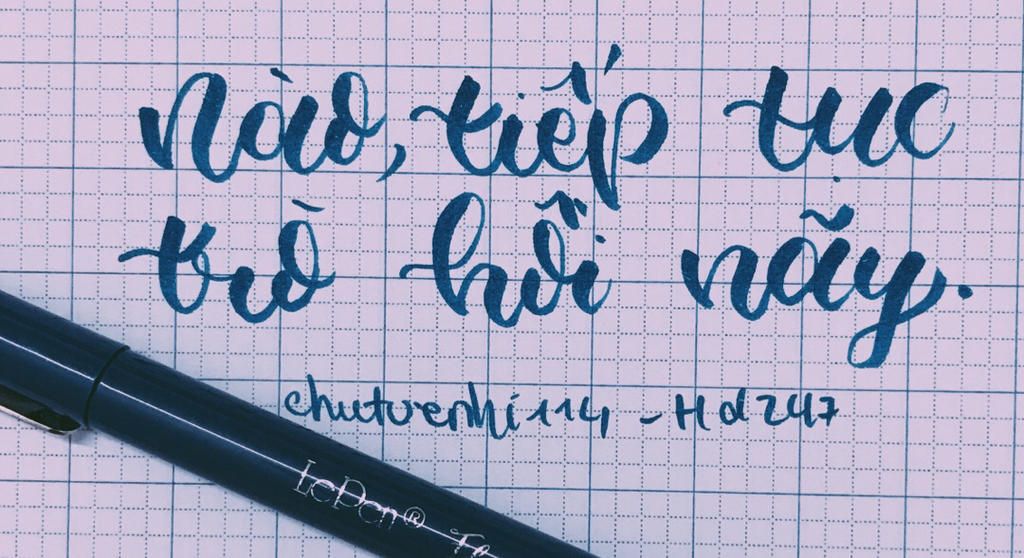 nào, tiếp tục
trò hồi nãy.
chuturenhi114 - Hd247
LePen®